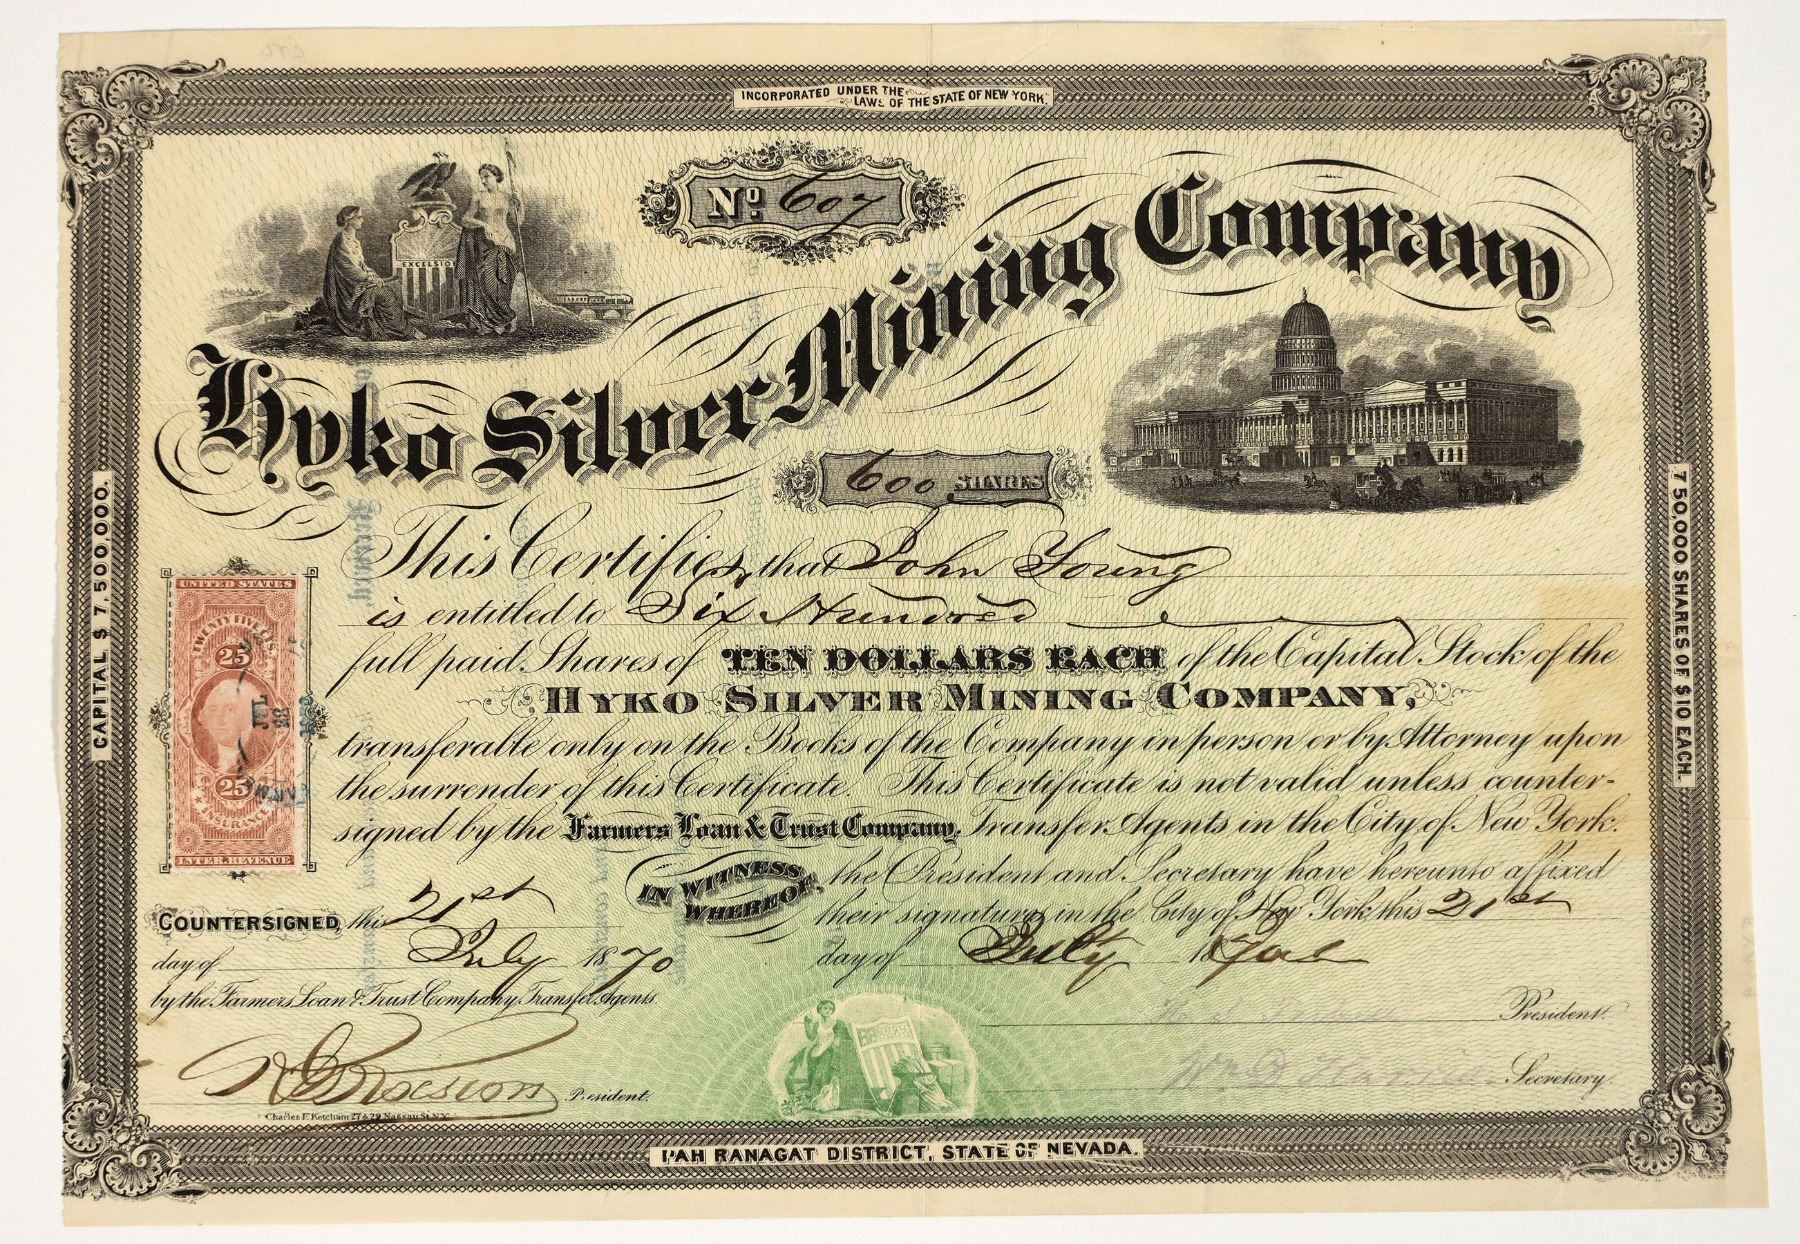 INCORPORATED UNDER THE
LAWS OF THE STATE OF NEW YORK.
No. 607
EXCELSIO
Hyko Silver Mining Company
600 SHARES
CAPITAL $7,500,000.
750,000 SHARES OF $10 EACH.
This Certifies, that John Young
is entitled to Six Hundred
full paid Shares of TEN DOLLARS EACH of the Capital Stock of the
HYKO SILVER MINING COMPANY,
transferable only on the Books of the Company in person or by Attorney upon
the surrender of this Certificate. This Certificate is not valid unless counter-
signed by the Farmers Loan & Trust Company, Transfer Agents in the City of New York.
UNITED STATES
TWENTY FIVE CTS.
25
25
INSURANCE
INTER. REVENUE
IN WITNESS WHEREOF, the President and Secretary have hereunto affixed
their signatures, in the City of New York, this 21st
day of July 1870
COUNTERSIGNED, this 21st
day of July 1870
by the Farmers Loan & Trust Company, Transfer Agents.
President.
President.
Wm D
Secretary.
Charles F. Ketcham 27 & 29 Nassau St. N.Y.
PAH RANAGAT DISTRICT, STATE OF NEVADA.